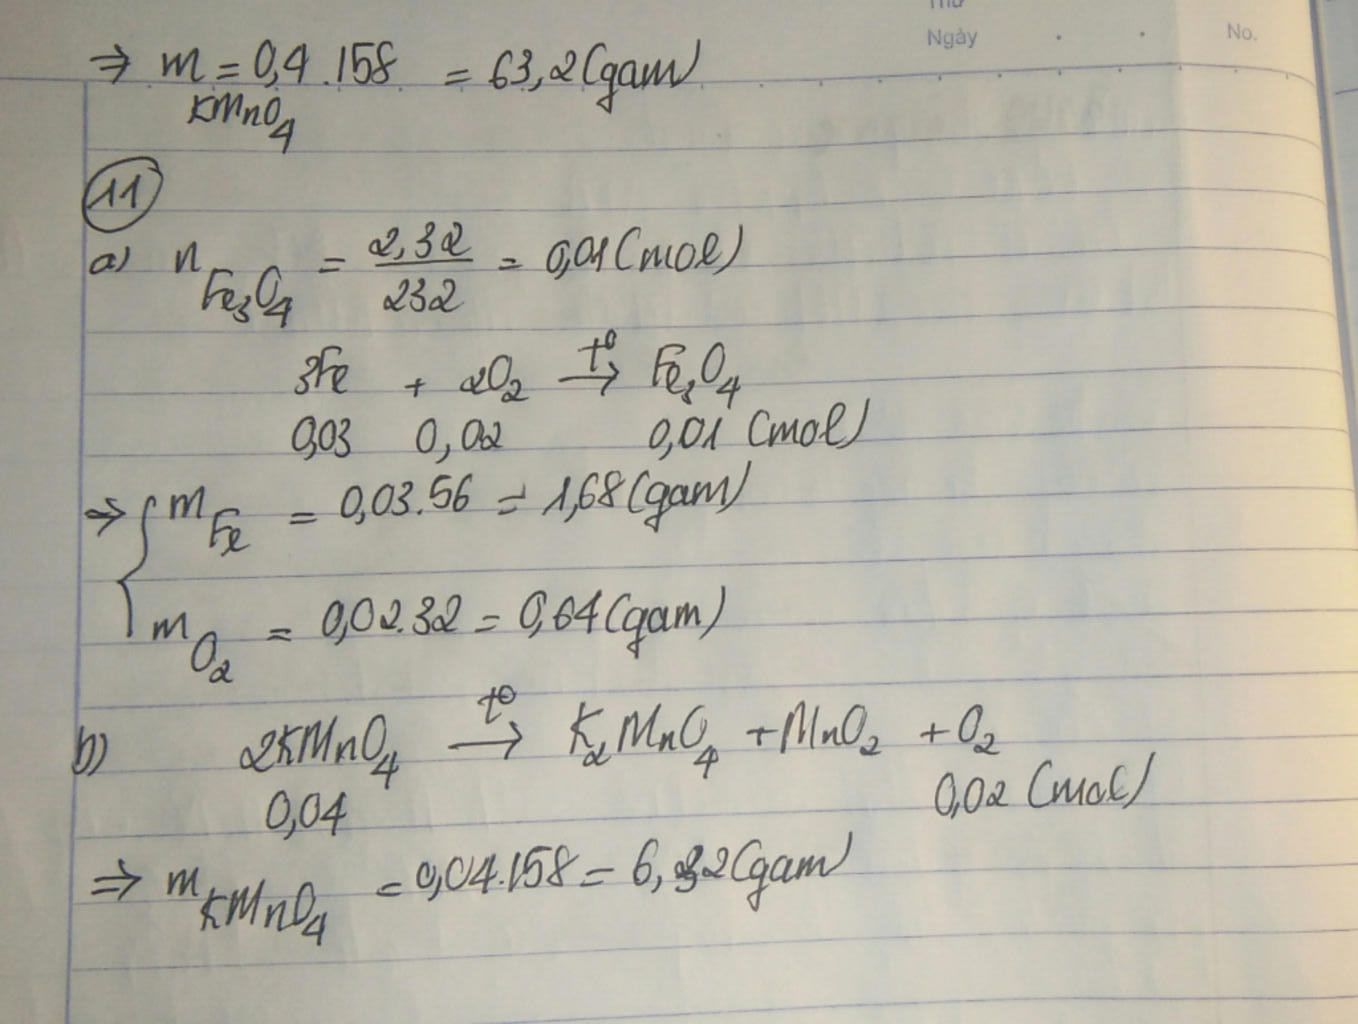 Thứ
Ngày . . No.
⇒ m KMnO4 = 0,4.158 = 63,2 (gam)
11
a) n Fe3O4 = 2,32/232 = 0,01 (mol)
3Fe + 2O2 →t° Fe3O4
0,03 0,02 0,01 (mol)
⇒ { m Fe = 0,03.56 = 1,68 (gam)
m O2 = 0,02.32 = 0,64 (gam)
b) 2KMnO4 →t° K2MnO4 + MnO2 + O2
0,04 0,02 (mol)
⇒ m KMnO4 = 0,04.158 = 6,32 (gam)